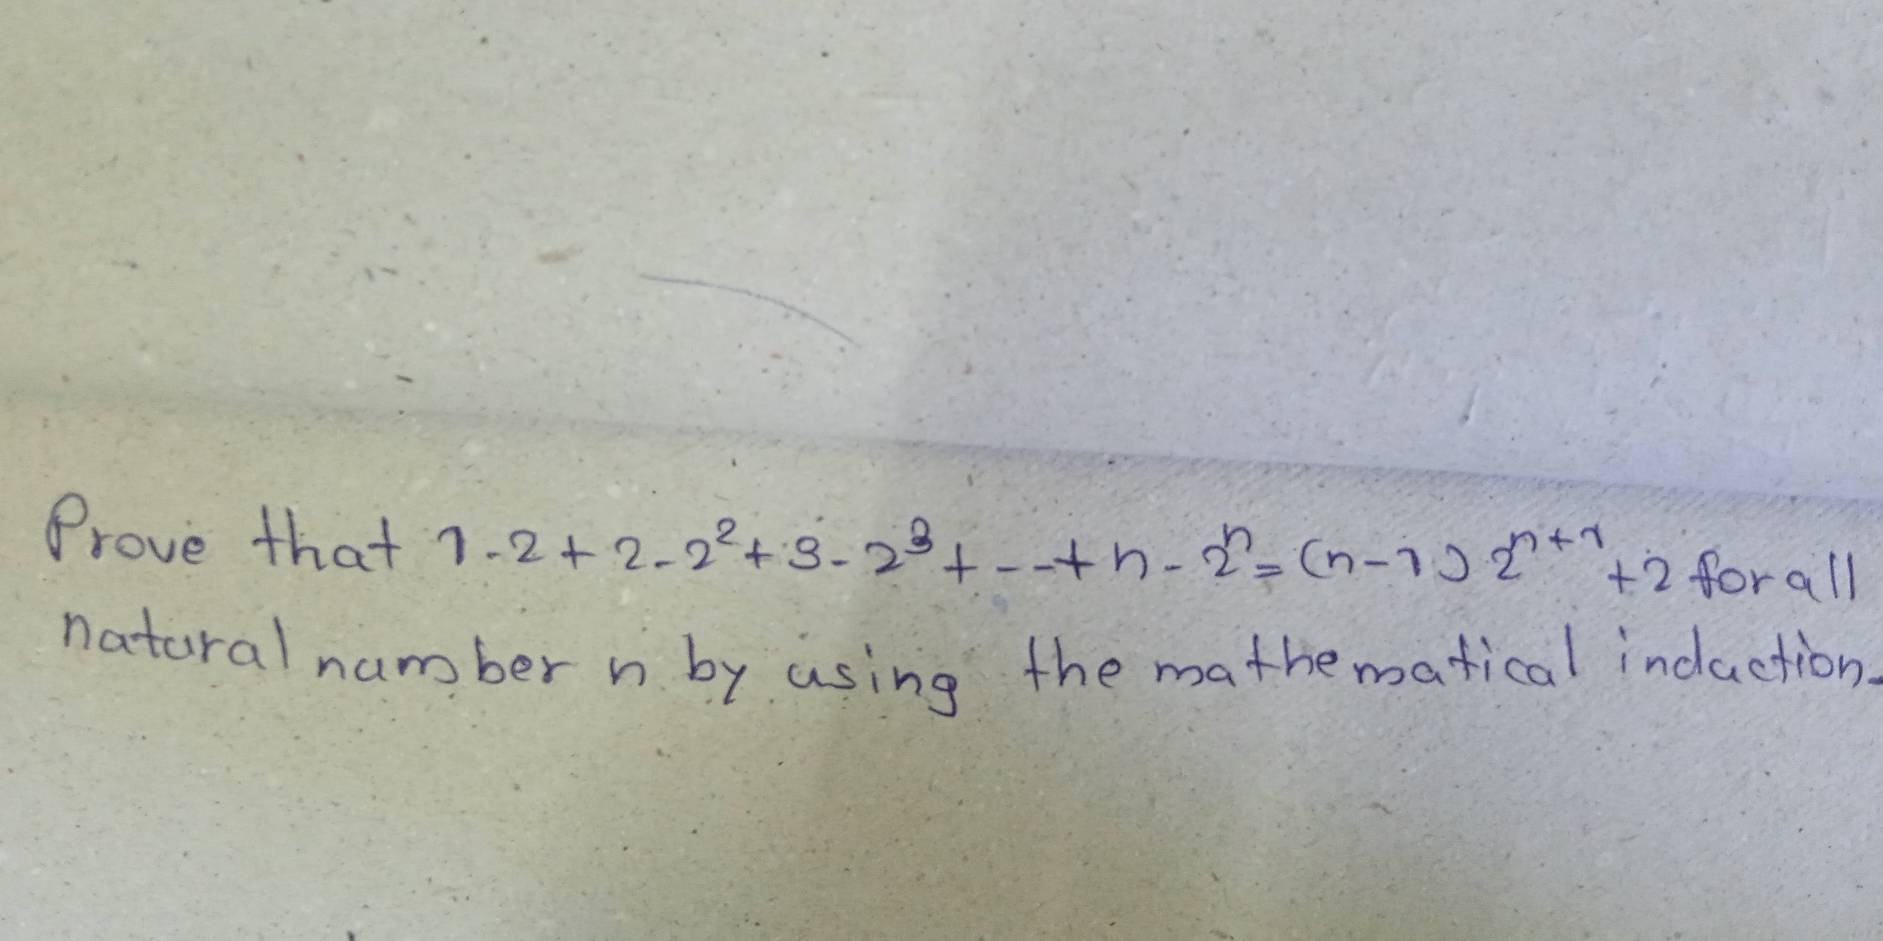 Prove that 1.2+2.2²+3.2³+---+n.2ⁿ=(n-1)2ⁿ⁺¹+2 for all
natural number n by using the mathematical induction.